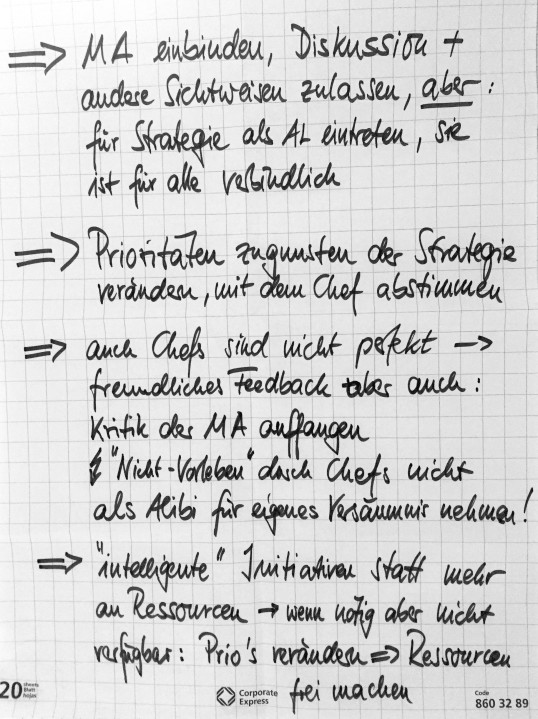 ⇒ MA einbinden, Diskussion +
andere Sichtweisen zulassen, aber:
für Strategie als AL eintreten, sie
ist für alle verbindlich
⇒ Prioritäten zugunsten der Strategie
verändern, mit dem Chef abstimmen
⇒ auch Chefs sind nicht perfekt →
freundliches Feedback aber auch:
Kritik der MA auffangen
"Nicht-Vorleben" durch Chefs nicht
als Alibi für eigenes Versäumnis nehmen!
⇒ "intelligente" Initiativen statt mehr
an Ressourcen → wenn nötig aber nicht
verfügbar: Prio's verändern ⇒ Ressourcen
frei machen
20 sheets
Blatt
hojas
Corporate
Express
Code
860 32 89